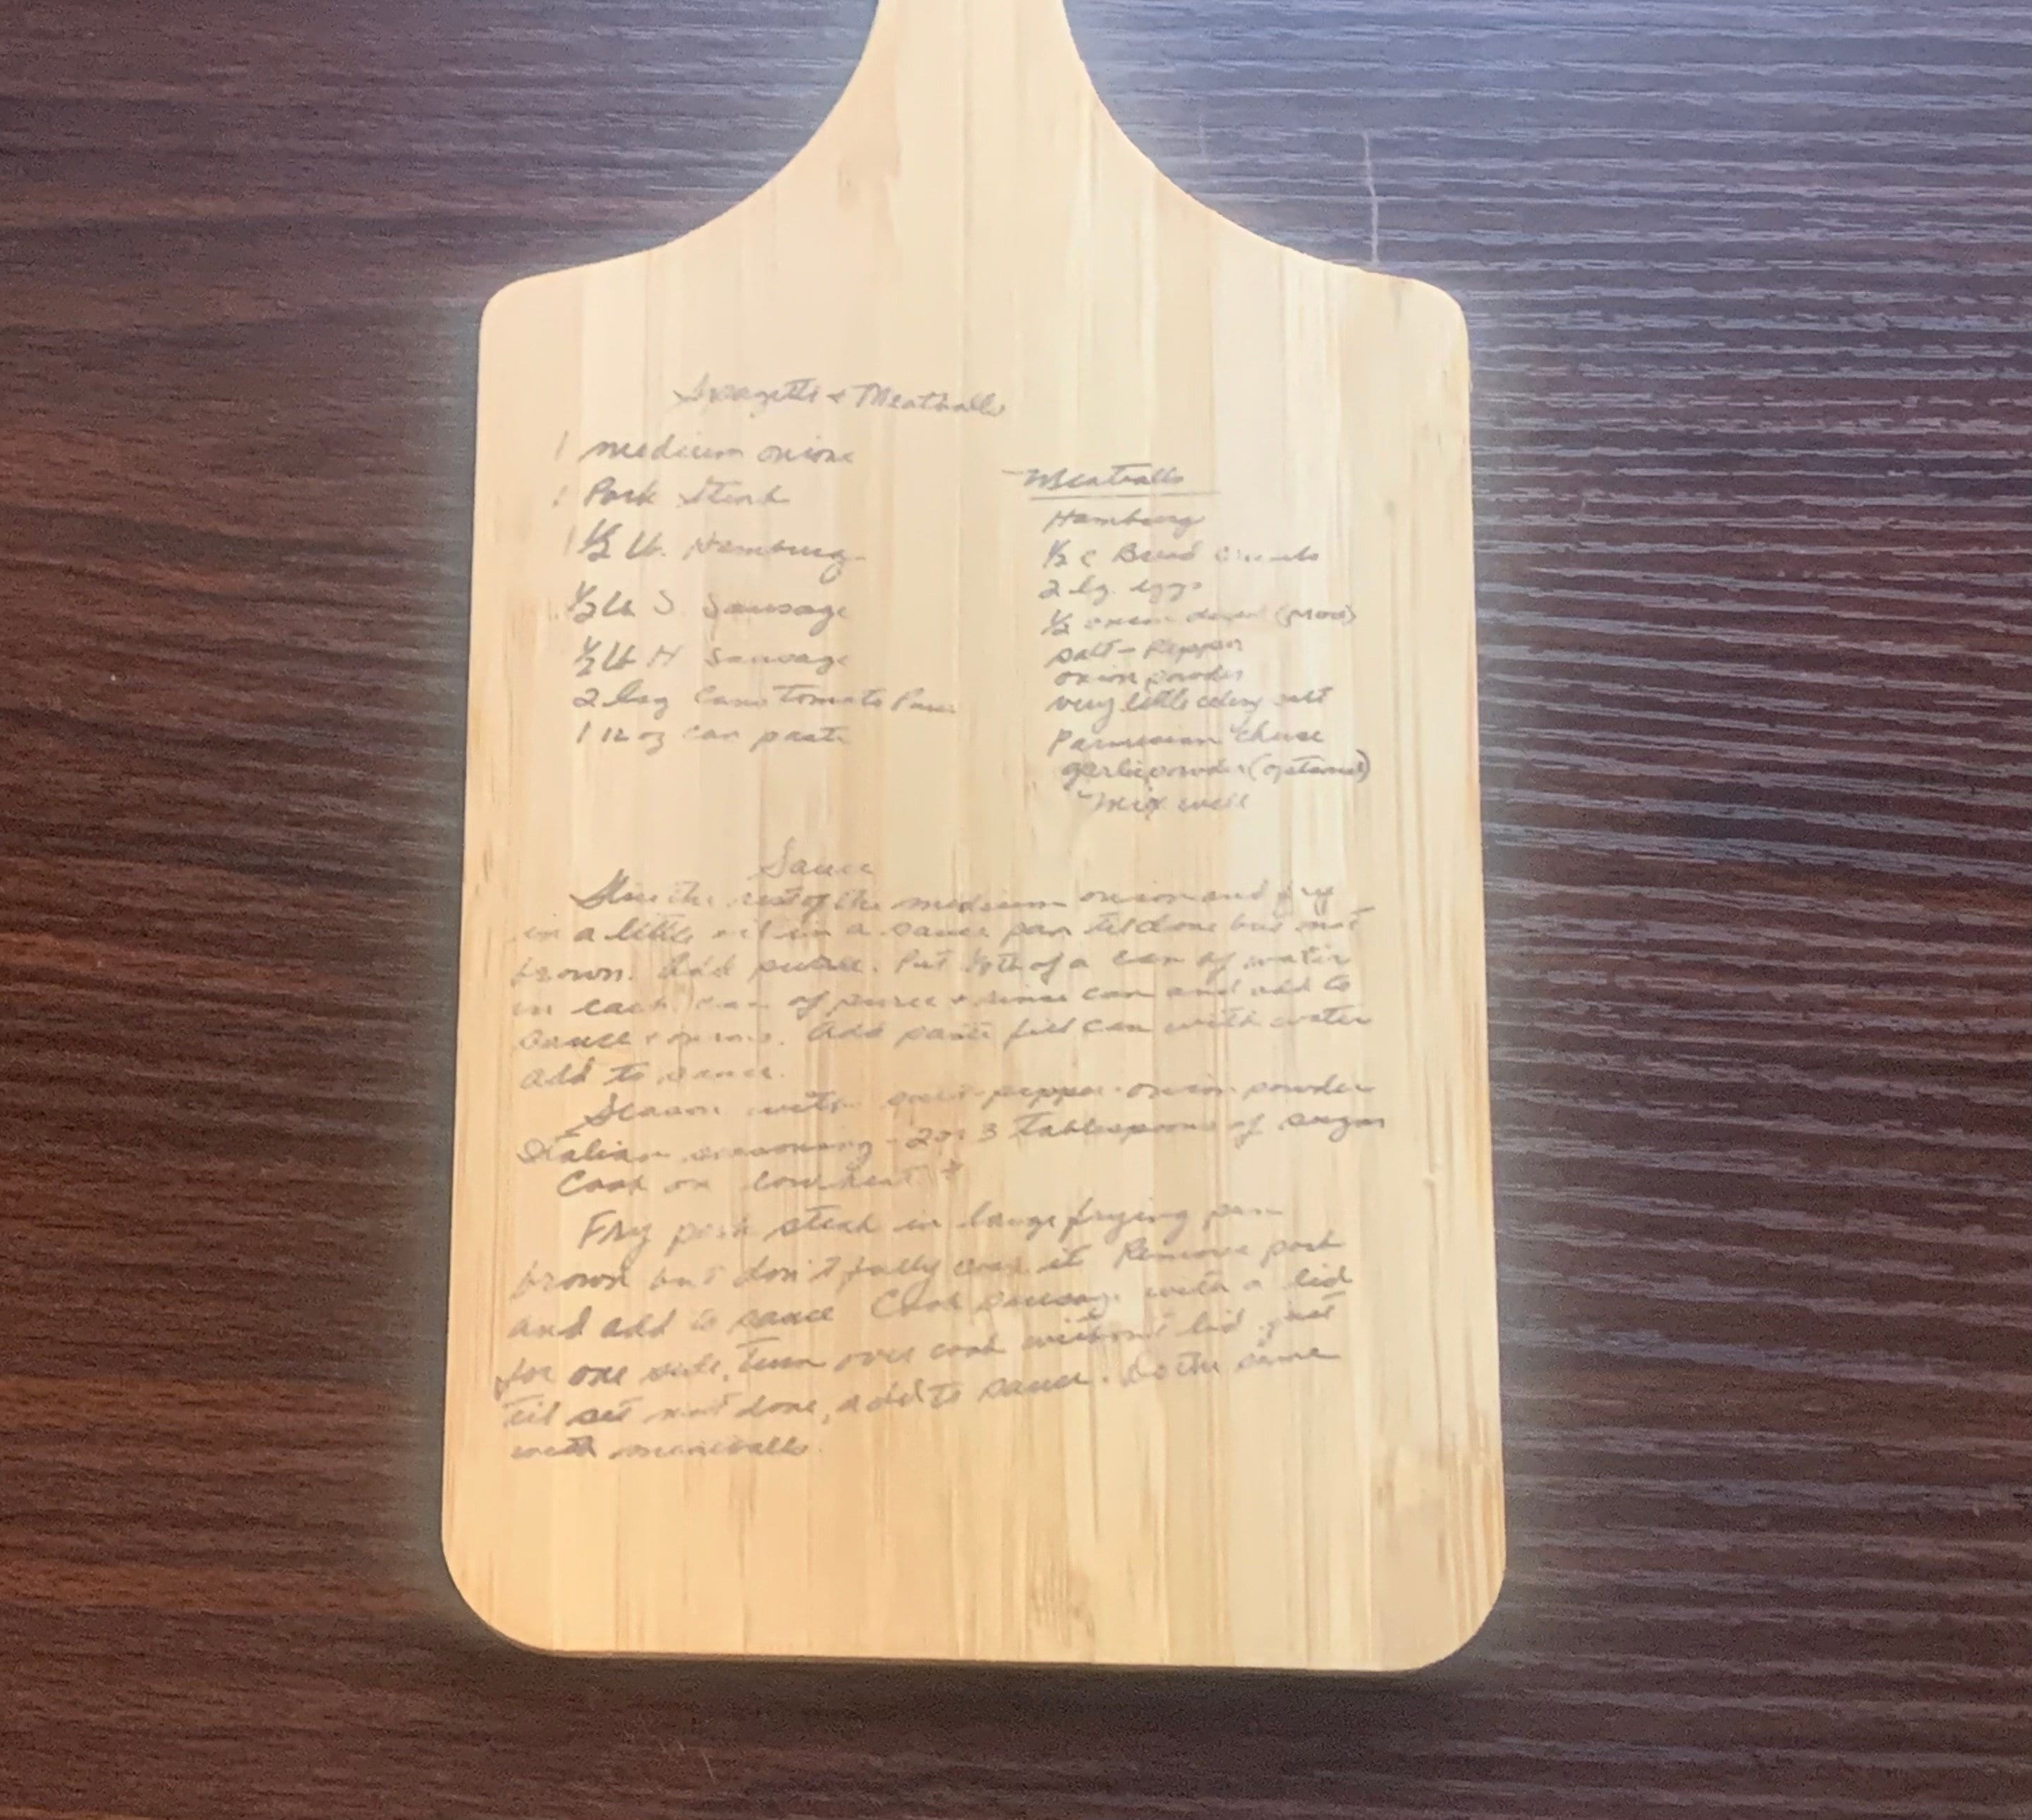 Spagetti + Meatballs
1 medium onion
1 Pork Steak
1 1/2 lb. Hamburg
1/2 lb S. Sausage
1/2 lb H Sausage
2 Cans Tomato
1 12 oz can paste
Meatballs
Hamburg
1/2 c Bread
2 lg. eggs
1/2 onion
salt - Pepper
onion powder
very little celery salt
Parmesan Cheese
garlic powder (optional)
Mix well
Sauce
the rest of the medium onion and fry
in a little oil in a sauce pan til done but not
brown. Add puree. Put of a can of water
in each can of puree + rinse can and add to
sauce + onions. Add paste fill can with water
add to sauce.
Season with salt - pepper - onion powder
Italian seasoning - 2 or 3 tablespoons of sugar
Cook on low heat
Fry pork steak in large frying pan
brown but don't fully cook it Remove pork
and add to sauce Cook sausage with a lid
for one side, Turn over cook without lid just
til set not done, add to sauce. Do the same
with meatballs.